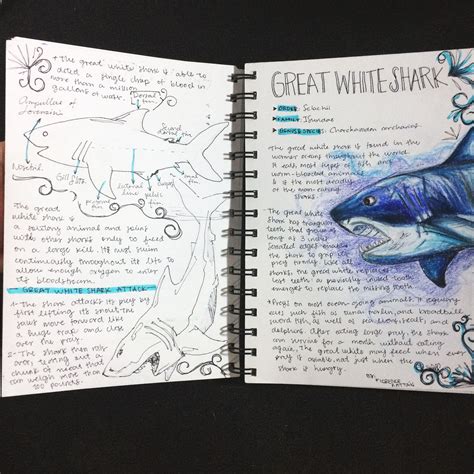 • The great white shark is able to
detect a single drop of blood in
more than a million
gallons of water.
Ampullae of
Lorenzini
Dorsal
fin
Second
Dorsal
fin
Nostril
Gill
Pectoral
fin
Lateral
line
Pelvic
fin
The great
white shark is
a solitary animal and joins
with other sharks only to feed
on a large kill. It must swim
continuously throughout its life to
allow enough oxygen to enter
its bloodstream.
GREAT WHITE SHARK ATTACK
1- The shark attacks its prey by
first lifting its snout. The
jaws move forward like
a huge trap and close
over the prey.
2- The shark then
over tearing out a
chunk of meat that
can weigh more than
pounds.
GREAT WHITE SHARK
ORDER: Selachii
FAMILY: Isuridae
GENUS SPECIES: Charcharodon carcharias
The great white shark is found in the
warmer oceans throughout the world.
It eats most types of fish and
warm-blooded animals
& is the most deadly
of the man-eating
sharks.
The great white
shark has triangular
teeth that grow as
long as 3 inches.
Serrated edges enable
the shark to grip its
prey firmly. Like all
sharks, the great white replaces
lost teeth: a previously unused tooth
emerges to replace a missing tooth.
• Preys on most ocean going animals. It regularly
eats such fish as tuna, halibut, and broadbill
sword fish, as well as sea lions, seals, and
dolphins. After eating large prey, the shark
can survive for a month without eating
again. The great white may feed when ever
prey is available, not just when the
shark is hungry.
BY: